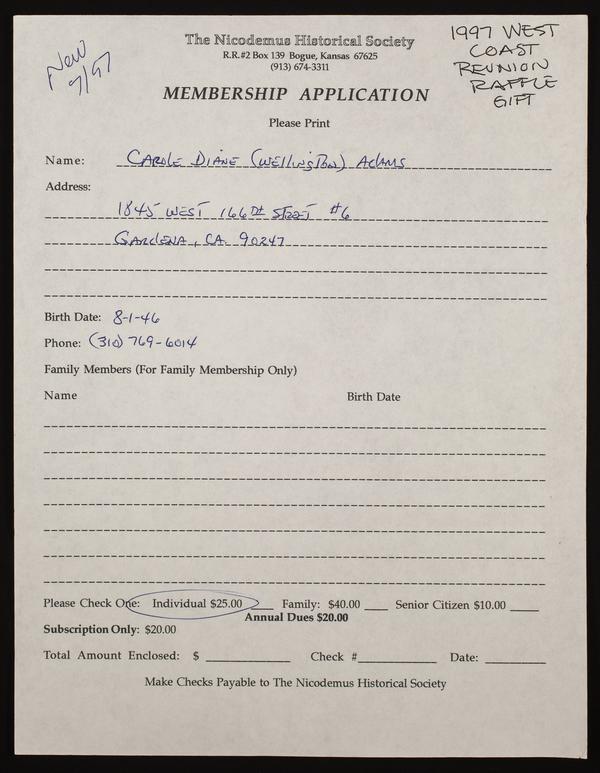 New
7/97
1997 WEST
COAST
REUNION
RAFFLE
GIFT
The Nicodemus Historical Society
R.R.#2 Box 139 Bogue, Kansas 67625
(913) 674-3311
MEMBERSHIP APPLICATION
Please Print
Name: CAROLE DIANE (WELLINGTON) ADAMS
Address:
1845 WEST 166TH STREET #6
GARDENA, CA. 90247
Birth Date: 8-1-46
Phone: (310) 769-6014
Family Members (For Family Membership Only)
Name Birth Date
Please Check One: Individual $25.00 ____ Family: $40.00 ____ Senior Citizen $10.00 ____
Annual Dues $20.00
Subscription Only: $20.00
Total Amount Enclosed: $ ____ Check # ____ Date: ____
Make Checks Payable to The Nicodemus Historical Society